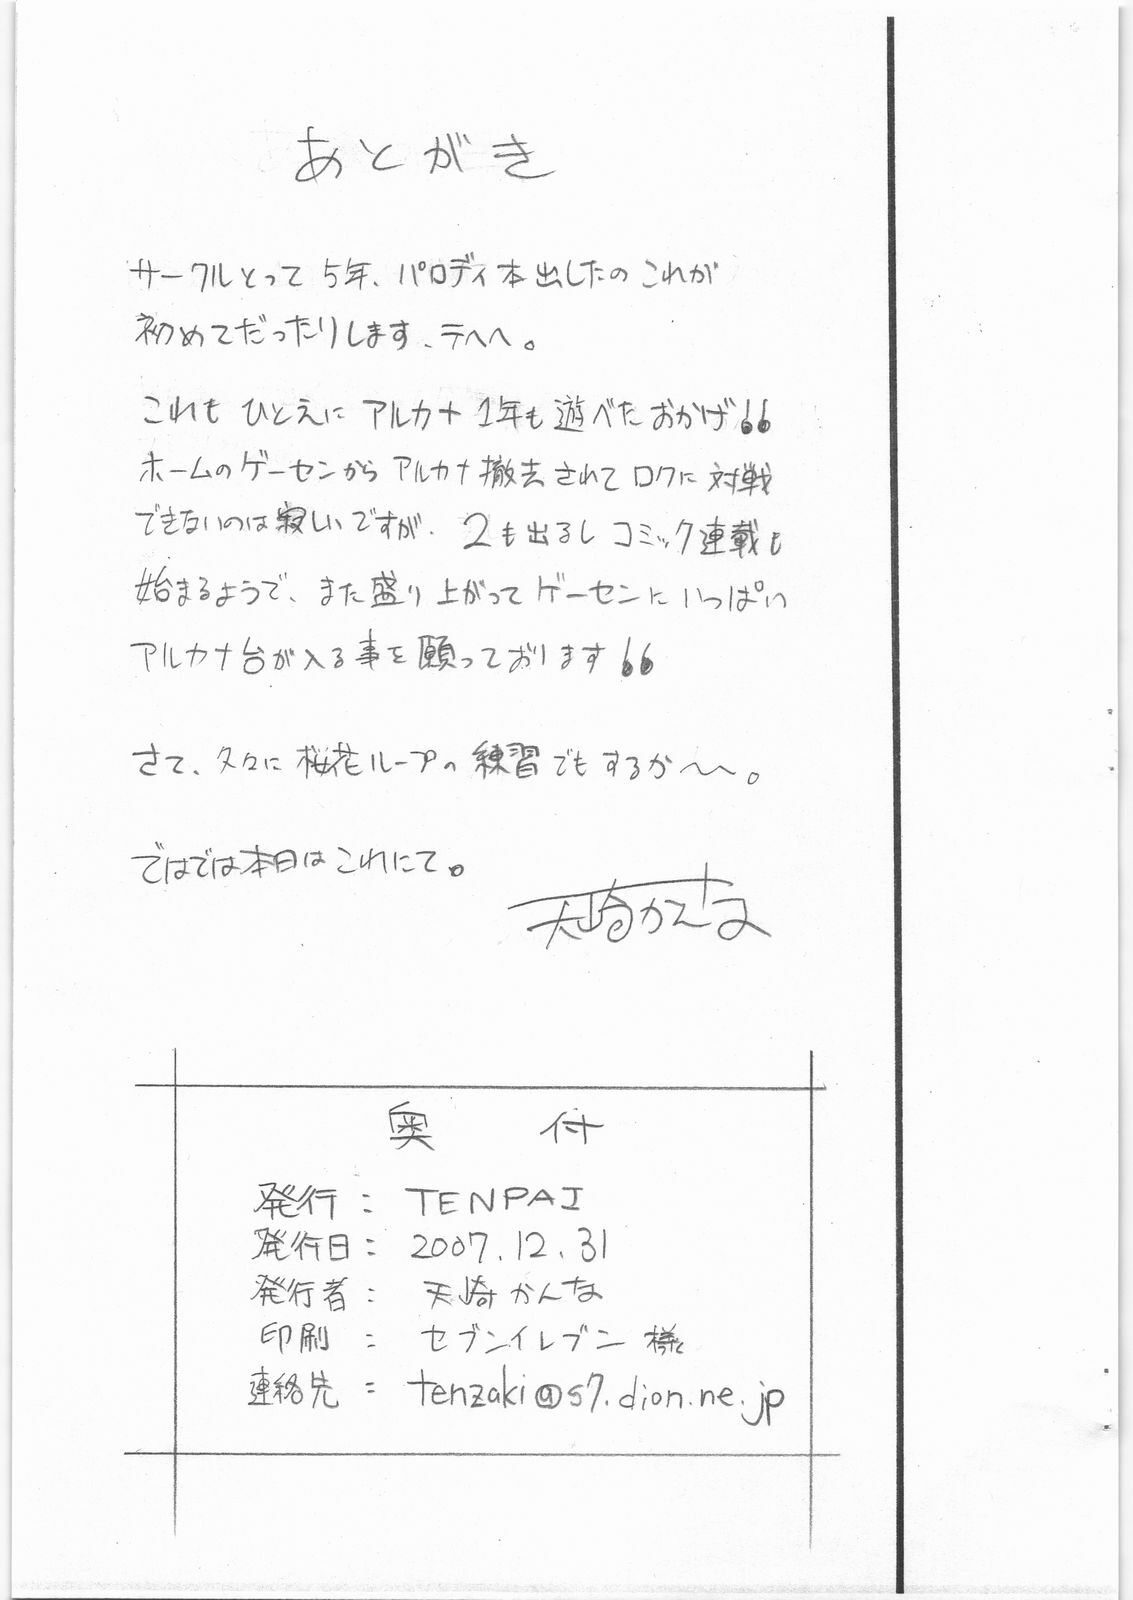 あとがき
サークルとって5年、パロディ本出したのこれが
初めてだったりします、テヘヘ。
これもひとえにアルカナ1年も遊べたおかげ!!
ホームのゲーセンからアルカナ撤去されてロクに対戦
できないのは寂しいですが、2も出るしコミック連載も
始まるようで、また盛り上がってゲーセンにいっぱい
アルカナ台が入る事を願っております!!
さて、久々に桜花ループの練習でもするか〜〜。
ではでは本日はこれにて。
天崎かんな
奥付
発行:TENPAI
発行日:2007.12.31
発行者:天崎かんな
印刷:セブンイレブン様
連絡先:tenzaki@s7.dion.ne.jp